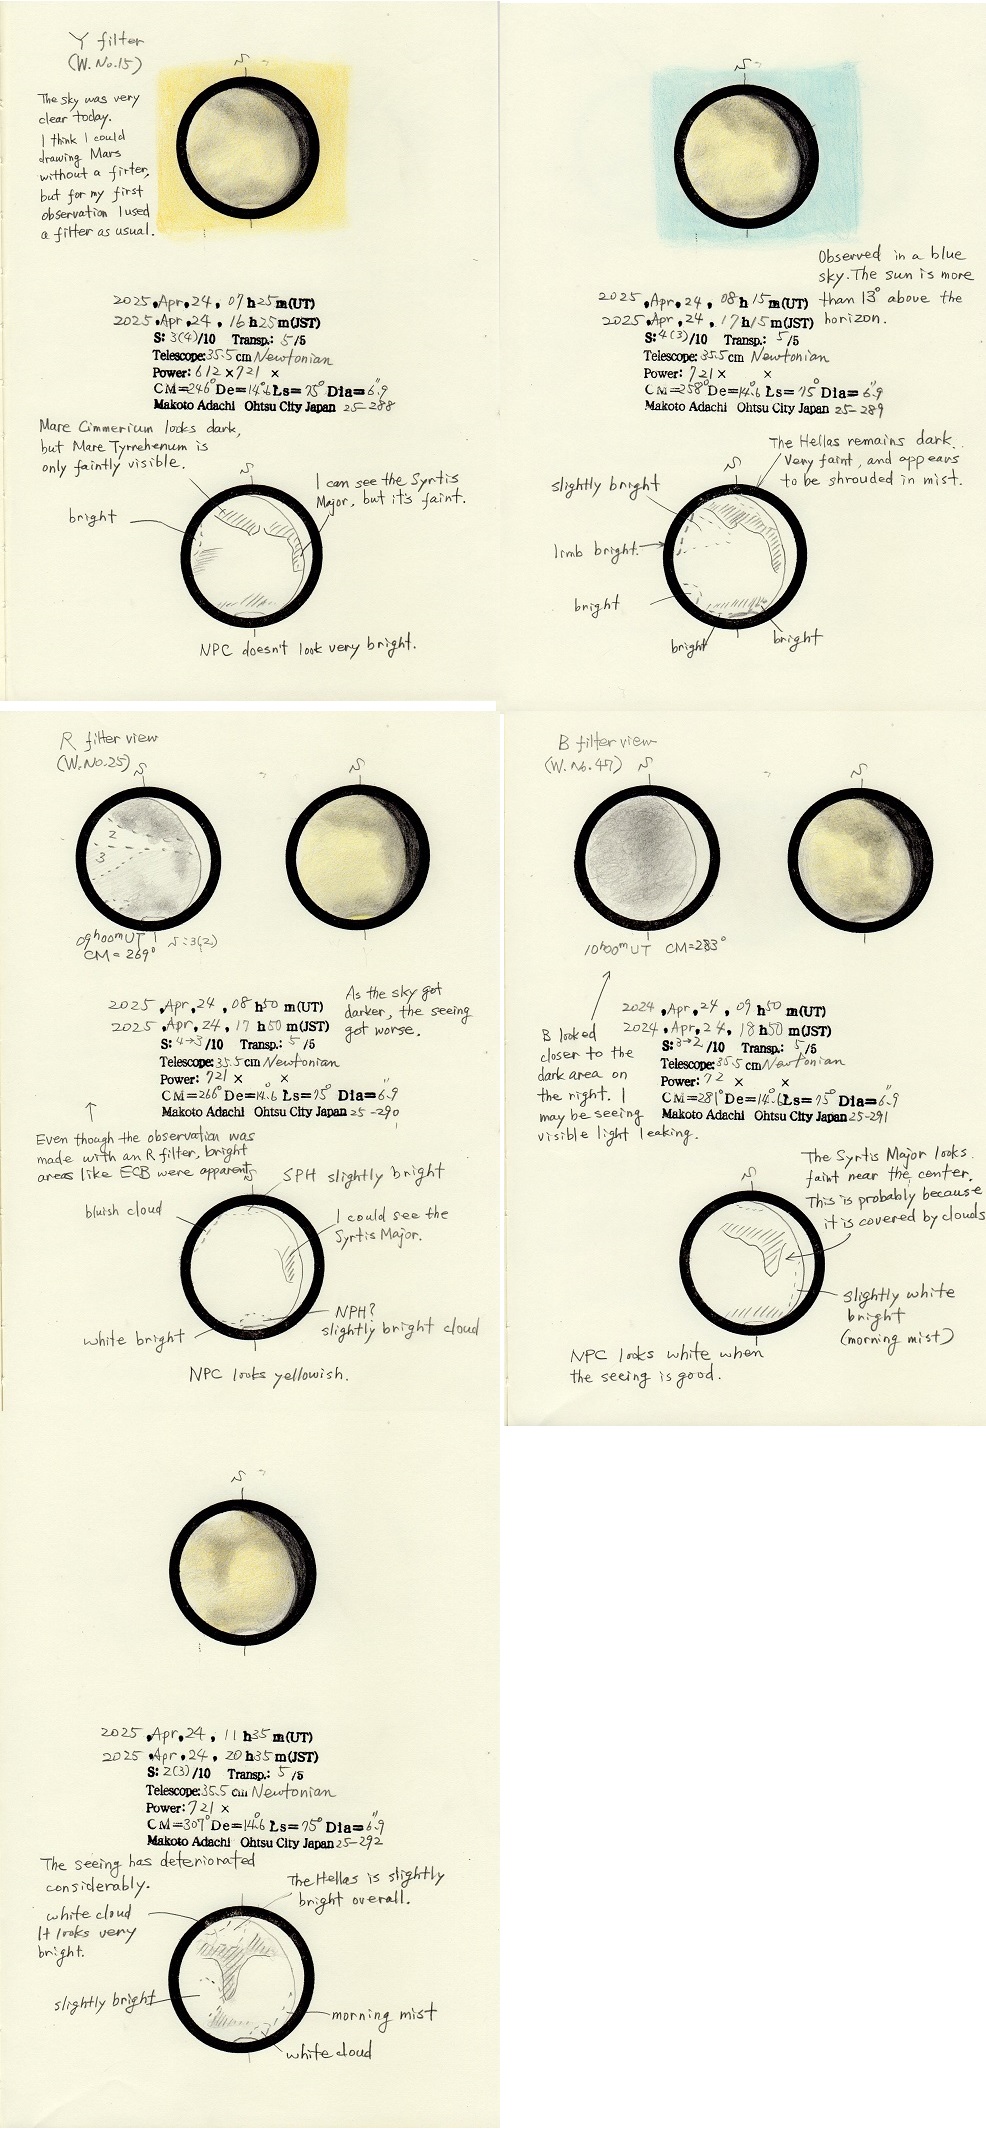 Y filter
(W.No.15)
S
The sky was very
clear today.
I think I could
drawing Mars
without a firter,
but for my first
observation I used
a filter as usual.
2025 ,Apr,24, 07h25m(UT)
2025 ,Apr,24, 16h25m(JST)
S: 3(4)/10 Transp.: 5/5
Telescope:35.5cm Newtonian
Power: 612 ×721 ×
CM=246° De=14.6° Ls=75° Dia=6."9
Makoto Adachi Ohtsu City Japan 25-288
Mare Cimmerium looks dark,
but Mare Tyrrehenum is
only faintly visible.
S
I can see the Syrtis
Major, but it's faint.
bright
NPC doesn't look very bright.
S
Observed in a blue
sky. The sun is more
than 13° above the
horizon.
2025 ,Apr,24, 08h15m(UT)
2025 ,Apr,24, 17h15m(JST)
S: 4(3)/10 Transp.: 5/5
Telescope:35.5cm Newtonian
Power: 721 × ×
CM=258° De=14.6° Ls=75° Dia=6."9
Makoto Adachi Ohtsu City Japan 25-289
The Hellas remains dark.
Very faint, and appears
to be shrouded in mist.
S
slightly bright
limb bright.
bright
bright
bright
R filter view
(W.No.25)
S
S
2
3
09h00mUT S:3(2)
CM=269°
As the sky got
darker, the seeing
got worse.
2025 ,Apr,24, 08h50m(UT)
2025 ,Apr,24, 17h50m(JST)
S: 4→3/10 Transp.: 5/5
Telescope:35.5cm Newtonian
Power: 721 × ×
CM=266° De=14.6° Ls=75° Dia=6."9
Makoto Adachi Ohtsu City Japan 25-290
Even though the observation was
made with an R filter, bright
areas like ECB were apparent.
S
SPH slightly bright
bluish cloud
I could see the
Syrtis Major.
NPH?
slightly bright cloud
white bright
NPC looks yellowish.
B filter view
(W.No.47)
S
S
10h00mUT CM=283°
B looked
closer to the
dark area on
the right. I
may be seeing
visible light leaking.
2024 ,Apr,24, 09h50m(UT)
2024 ,Apr,24, 18h50m(JST)
S: 3→2/10 Transp.: 5/5
Telescope:35.5cm Newtonian
Power: 72 × ×
CM=281° De=14.6° Ls=75° Dia=6."9
Makoto Adachi Ohtsu City Japan 25-291
The Syrtis Major looks
faint near the center.
This is probably because
it is covered by clouds
S
slightly white
bright
(morning mist)
NPC looks white when
the seeing is good.
S
2025 ,Apr,24, 11h35m(UT)
2025 ,Apr,24, 20h35m(JST)
S: 2(3)/10 Transp.: 5/5
Telescope:35.5cm Newtonian
Power: 721 ×
CM=307° De=14.6° Ls=75° Dia=6."9
Makoto Adachi Ohtsu City Japan 25-292
The seeing has deteriorated
considerably.
The Hellas is slightly
bright overall.
white cloud
It looks very
bright.
slightly bright
morning mist
white cloud